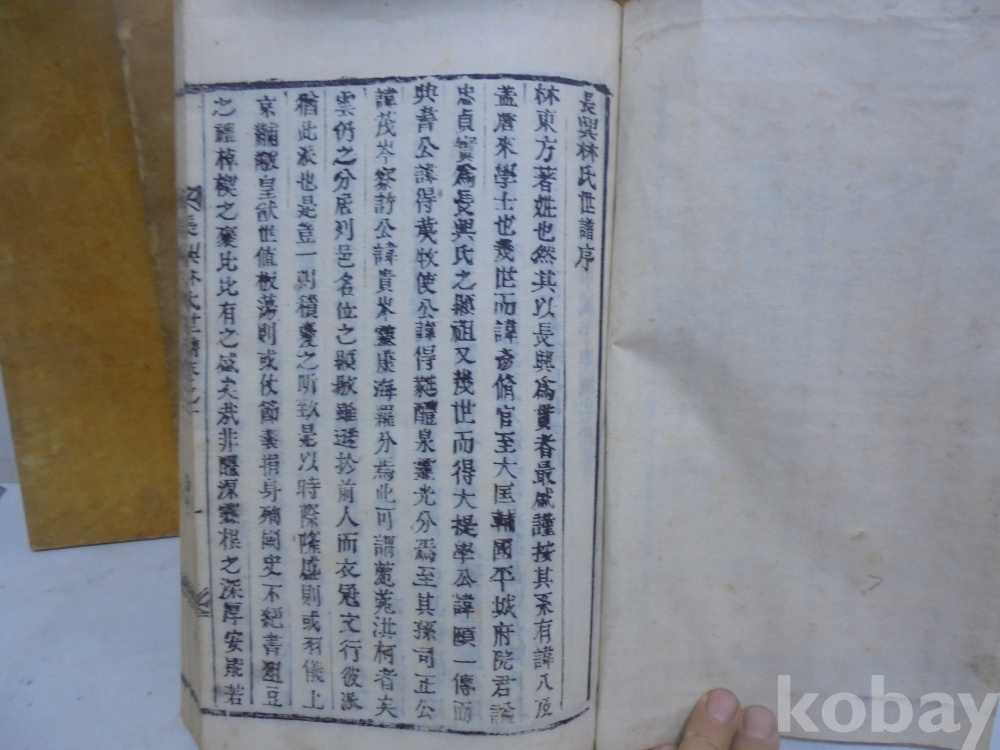 長興林氏世譜序
林東方著姓也然其以長興爲貫者最盛謹按其系有諱八及
盖唐來學士也幾世而諱彦脩官至大匡輔國平城府院君諡
忠貞實爲長興氏之顯祖又幾世而得大提學公諱頤一傳而
典書公諱得茂牧使公諱得 醴泉靈光分焉至其孫司正公
諱茂岑察訪公諱貴岑靈康海羅分焉此可謂 洪柯者矣
雲仍之分居列邑名位之顯 雖遜於前人而衣冠文行彼派
猶此派也是豈一 積慶之所致是以時際隆盛則或羽儀上
京黼黻皇猷世值板蕩則或仗節 捐身殉國史不絕書俎豆
之 棹楔之褒比比有之盛矣哉非醴源靈根之深厚安能若
長興林氏世譜卷之一
kobay